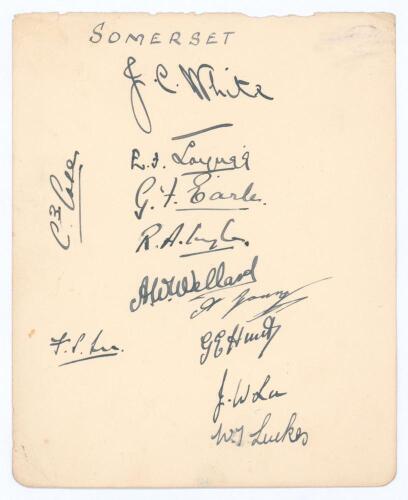 SOMERSET
J. C. White
E. F. Longrigg
C B Case
G. F. Earle.
R. A. Ingle.
A W Wellard
A Young
F. S. Lee.
G E Hunt
J. W Lee
W T Luckes